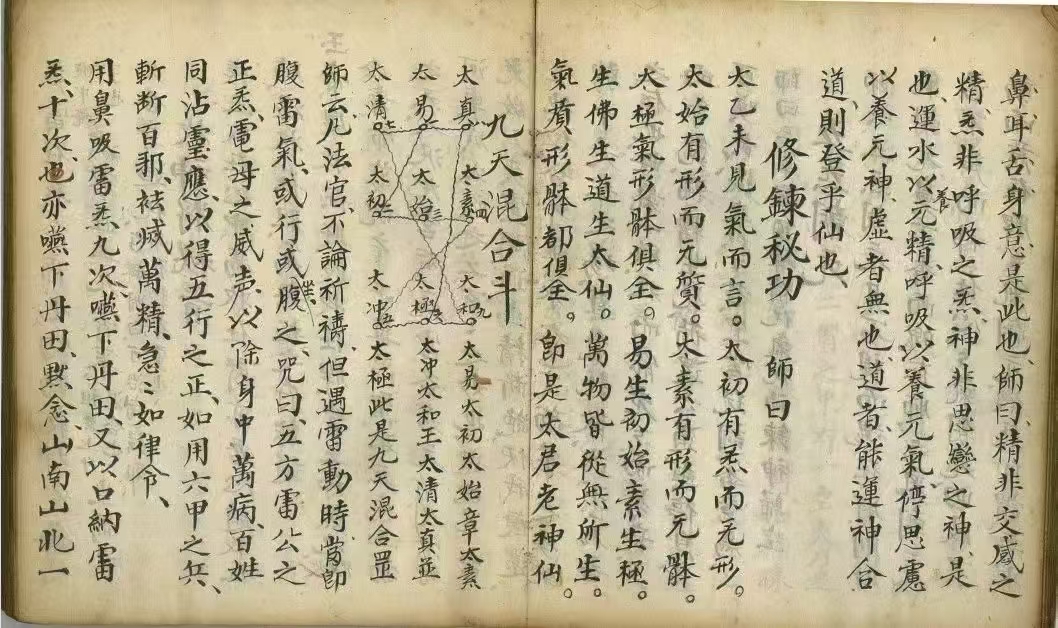 鼻、耳、舌、身、意、是此也、師曰、精非交感之
精、炁非呼吸之炁、神非思戀之神、是
也、運水以養元精、呼吸以養元氣、停思慮
以養元神、虛者無也、道者、能運神合
道、則登乎仙也、
修鍊秘功　師曰
太乙未見氣而言。太初有炁而无形。
太始有形而无質。太素有形而无骵。
太極氣形骵俱全。易生初始素生極。
生佛生道生太仙。萬物皆從無所生。
氣質形骵都俱全。即是太君老神仙。
九天混合斗
太真　太素四　太和九　太易太初太始章太素
太易　太始三　太極　太冲太和王太清太真並
太清七　太初　太冲　太極此是九天混合罡
師云、凡法官、不論祈禱、但遇雷動時、當即
腹雷氣、或行或坐腹之、咒曰、五方雷公之
正炁、電母之威声、以除身中萬病、百姓
同沾靈應、以得五行之正、如用六甲之兵、
斬断百邪、袪滅萬精、急〻如律令、
用鼻吸雷炁九次、嚥下丹田、又以口納雷
炁、十次、也亦嚥下丹田、黙念、山南山北一